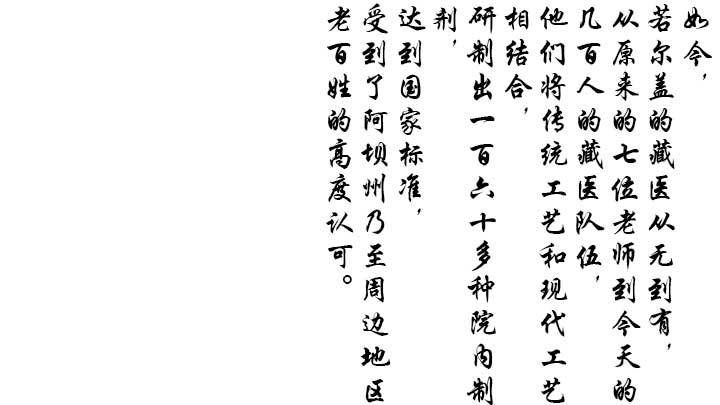 如今，
若尔盖的藏医从无到有，
从原来的七位老师到今天的
几百人的藏医队伍，
他们将传统工艺和现代工艺
相结合，
研制出一百六十多种院内制
剂，
达到国家标准，
受到了阿坝州乃至周边地区
老百姓的高度认可。